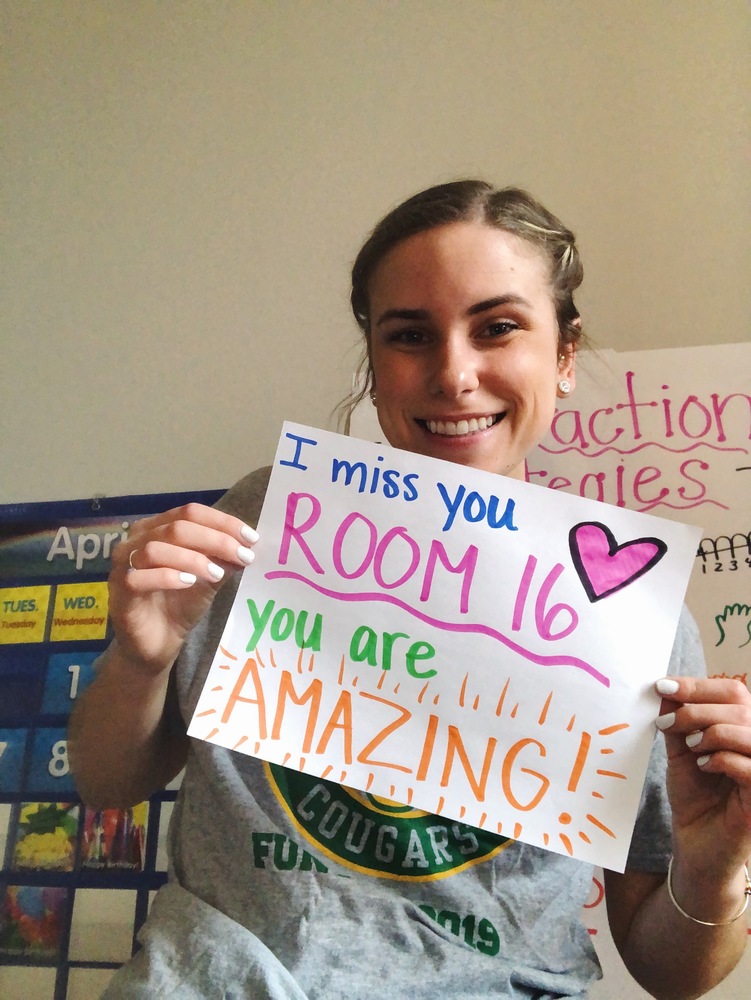 I miss you
ROOM 16
you are
AMAZING!
action
egies
1 2 3
April
TUES.
Tuesday
WED.
Wednesday
1
7
8
Happy Birthday!
COUGARS
FUN
2019